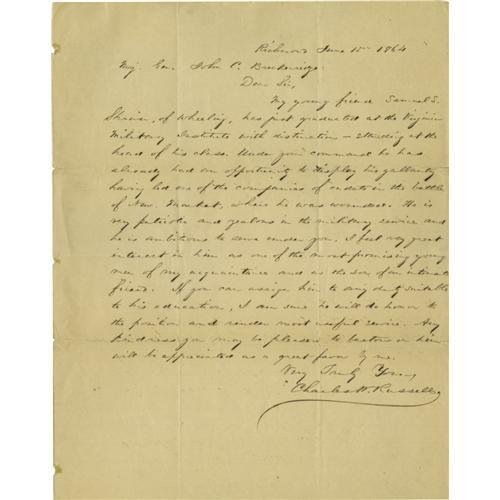 Richmond June 15th 1864
Maj. Gen. John C. Breckinridge
Dear Sir,
My young friend Samuel S.
Shriver, of Wheeling, has just graduated at the Virginia
Military Institute with distinction – standing at the
head of his class. Under your command he has
already had an opportunity to display his gallantry
having led one of the companies of cadets in the battle
of New Market, where he was wounded. He is
very patriotic and zealous in the military service and
he is ambitious to serve under you. I feel very great
interest in him as one of the most promising young
men of my acquaintance and as the son of an intimate
friend. If you can assign him to any duty suitable
to his education, I am sure he will do honor to
the position and render most useful service. Any
kindness you may be pleased to bestow on him
will be appreciated as a great favor by me.
Very Truly Yours,
Charles W. Russell